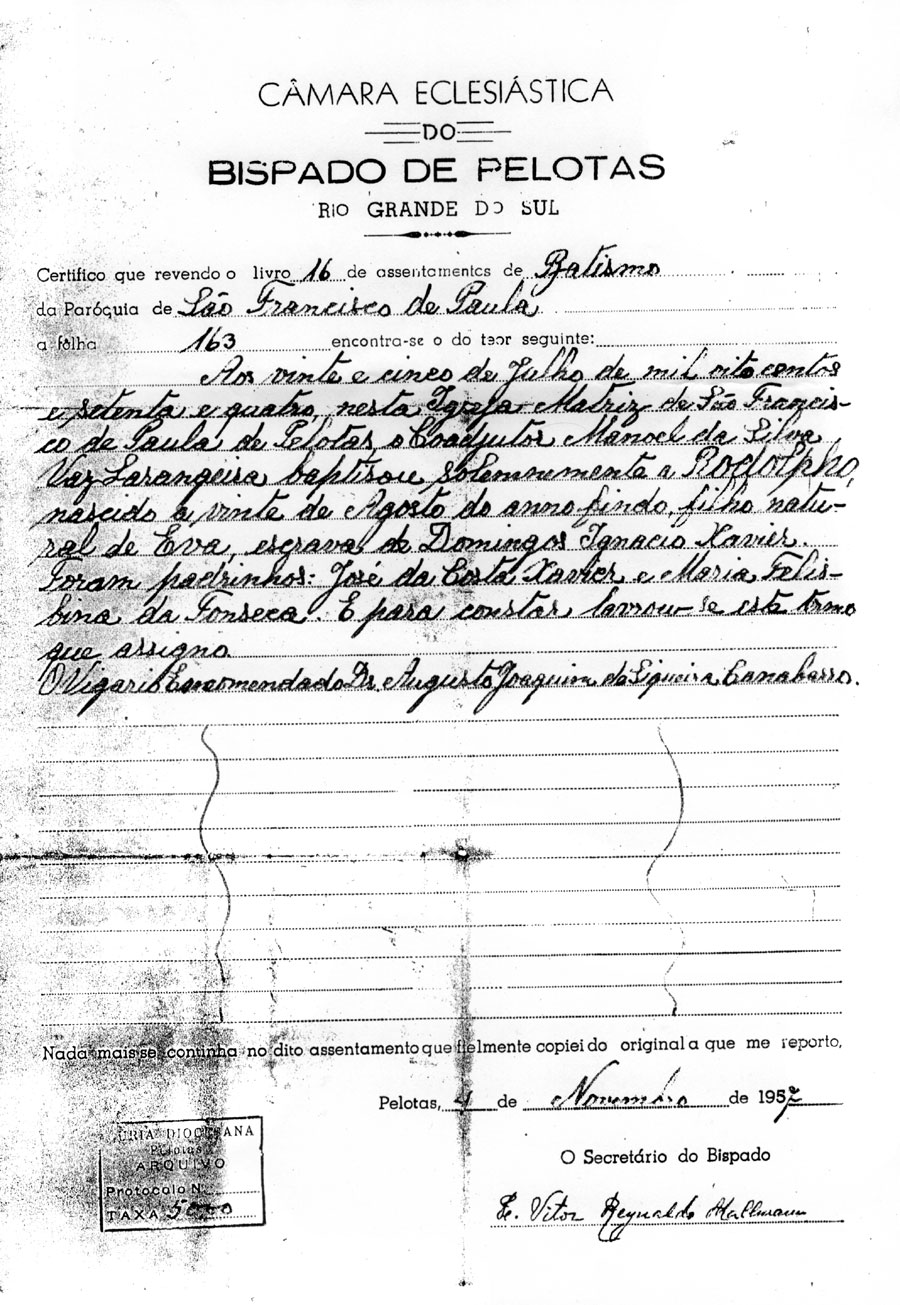 CÂMARA ECLESIÁSTICA
DO
BISPADO DE PELOTAS
RIO GRANDE DO SUL
Certifico que revendo o livro 16 de assentamentos de Batismo
da Paróquia de São Francisco de Paula
a fôlha 163 encontra-se o do teor seguinte:
Aos vinte e cinco de Julho de mil oito centos
e setenta e quatro, nesta Igreja Matriz de São Francis-
co de Paula de Pelotas o Coadjutor Manoel da Silva
Vaz Larangeira baptisou solemnemente a Rodolpho,
nascido a vinte de Agosto do anno findo, filho natu-
ral de Eva, escrava de Domingos Ignacio Xavier.
Foram padrinhos: José da Costa Xavier e Maria Felis-
bina da Fonseca. E para constar lavrou-se este termo
que assigno.
O Vigario Encomendado Dr. Augusto Joaquim da Siqueira Canabarro.
Nada mais se continha no dito assentamento que fielmente copiei do original a que me reporto,
Pelotas, 4 de Novembro de 1957
CÚRIA DIOCESANA
Pelotas
ARQUIVO
Protocolo N.
TAXA 5000
O Secretário do Bispado
Pe. Vitor Reynaldo Mallmann